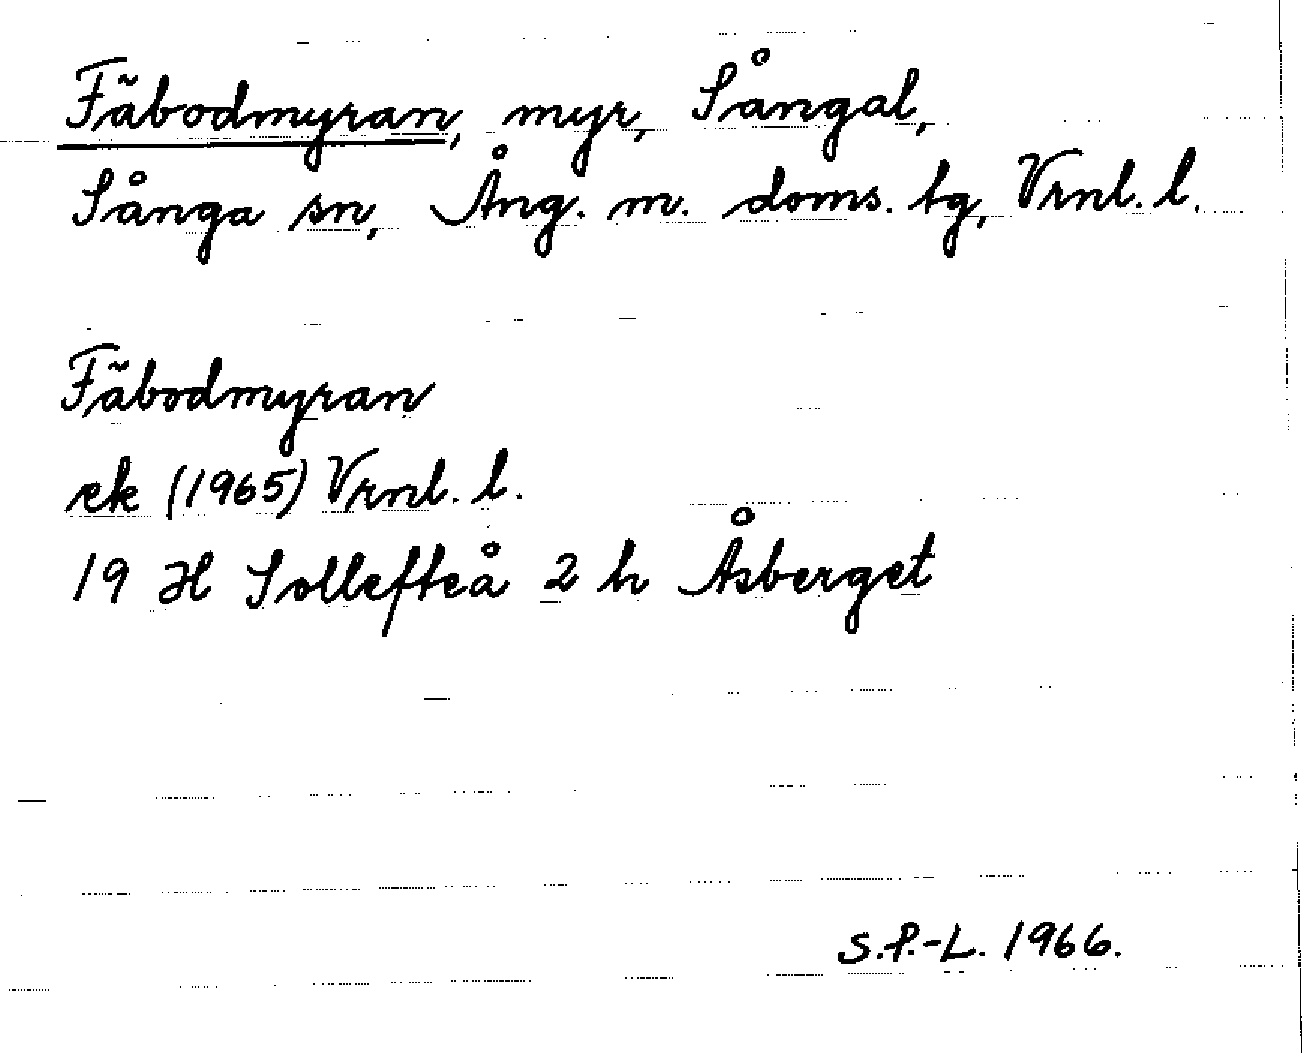 Fäbodmyran, myr, Sångal,
Sånga sn, Ång. m. doms. tg, Vrnl. l.
Fäbodmyran
ek (1965) Vrnl. l.
19 H Sollefteå 2 h Åsberget
S.P.-L. 1966.